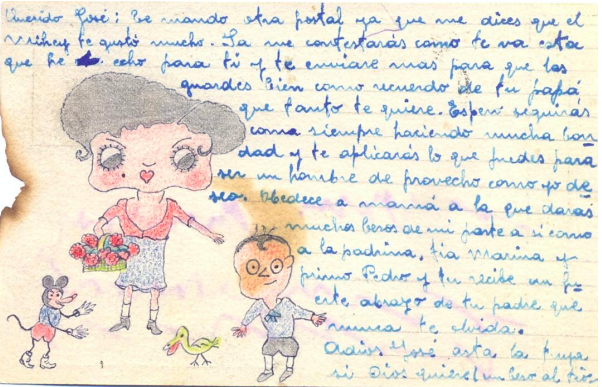 Querido José: Te mando otra postal ya que me dices que el
Mikey te gustó mucho. Ya me contestarás como te va esta
que he echo para ti y te enviaré mas para que las
guardes bien como recuerdo de tu papá
que tanto te quiere. Espero seguirás
como siempre haciendo mucha bon
dad y te aplicarás lo que puedas para
ser un hombre de provecho como yo de
seo. Obedece a mamá a la que darás
muchos besos de mi parte asi como
a la padrina, tia Marina y
primo Pedro y tu recibe un fu
erte abrazo de tu padre que
nunca te olvida.
Adios José asta la
si Dios quiere! un beso al